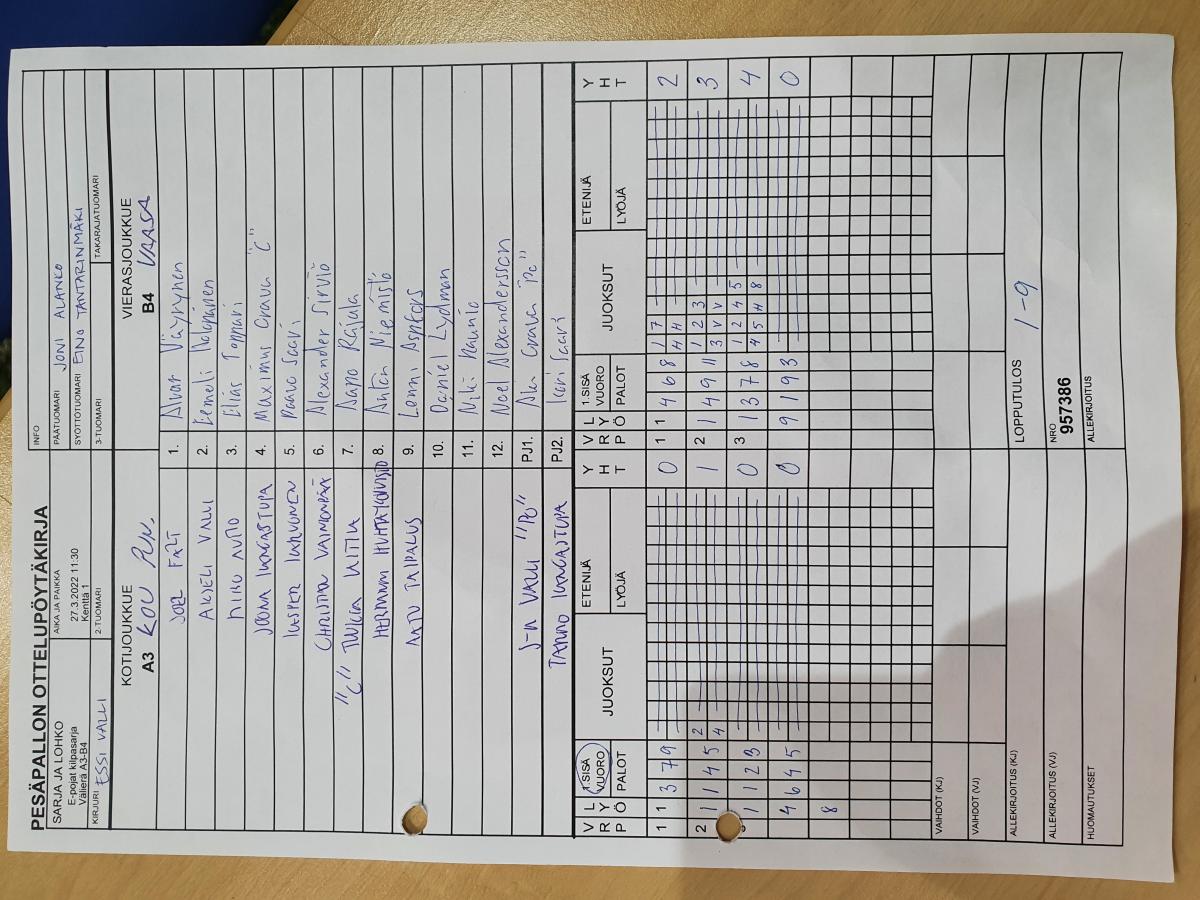 PESÄPALLON OTTELUPÖYTÄKIRJA
SARJA JA LOHKO
E-pojat kilpasarja
Välierä A3-B4
AIKA JA PAIKKA
27.3.2022 11:30
Kenttä 1
INFO
PÄÄTUOMARI JONI ALANKO
SYÖTTÖTUOMARI EINO TANTARINMÄKI
KIRJURI ESSI VALLI
2-TUOMARI
3-TUOMARI
TAKARAJATUOMARI
KOTIJOUKKUE
A3 KOU
VIERASJOUKKUE
B4 VAASA
JOEL FALT 1. Alvar Väyrynen
AKSELI VALLI 2. Eemeli
NIKO AUTIO 3. Elias Toppari
JOONA KANGASTUPA 4. Maximus Orava "C"
5. Paavo Saari
CHRISTIAN VAINIONPÄÄ 6. Alexander Sirviö
"C" 7. Aapo Rajala
HERMANNI 8. Anton Niemistö
AATU TAIPALUS 9. Lenni Aspfors
10. Daniel Lydman
11. Niki Kaunio
12. Noel Alexandersson
J-M VALLI "PO" PJ1. Orava
TANNO KANGASTUPA PJ2. Saari
V R P L Y Ö 1.SISÄ VUORO PALOT JUOKSUT ETENIJÄ LYÖJÄ Y H T V R P L Y Ö 1.SISÄ VUORO PALOT JUOKSUT ETENIJÄ LYÖJÄ Y H T
1 1 3 7 9 0 1 1 4 6 8 1 7 4 H 2
2 1 1 4 5 2 4 1 2 1 4 9 11 1 2 3 3 V V 3
1 1 2 3 0 3 1 3 7 8 1 2 4 5 4 5 H 8 4
4 6 4 5 0 9 1 9 3 0
8
VAIHDOT (KJ)
VAIHDOT (VJ)
ALLEKIRJOITUS (KJ)
LOPPUTULOS 1-9
ALLEKIRJOITUS (VJ)
NRO
957386
HUOMAUTUKSET
ALLEKIRJOITUS